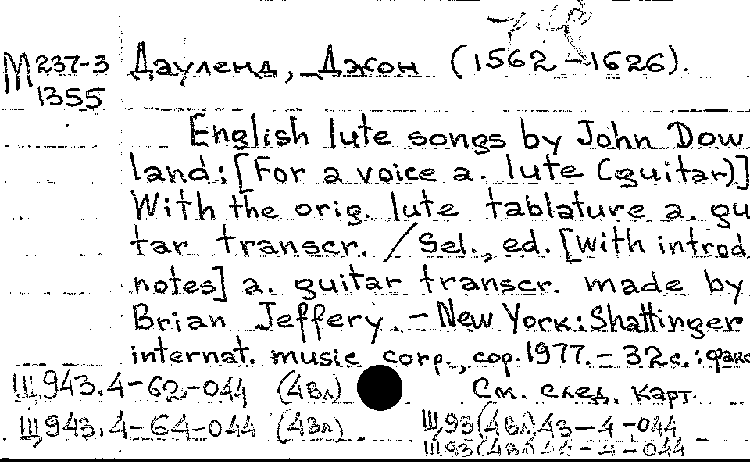 М 237-3 Дауленд, Джон (1562-1626).
1355
English lute songs by John Dow
land: [For a voice a. lute (guitar)]
With the orig. lute tablature a. gu
tar transcr. / Sel., ed. [with introd
notes] a. guitar transcr. made by
Brian Jeffery. - New York: Shattinger
internat. music corp., cop. 1977. - 32с.: факс
Щ943.4-62-044 (4Вл) См. след. карт.
Щ943.4-64-044 (4Вл) Щ93(4Вл)43-4-044
Щ93(4Вл)44-4-044